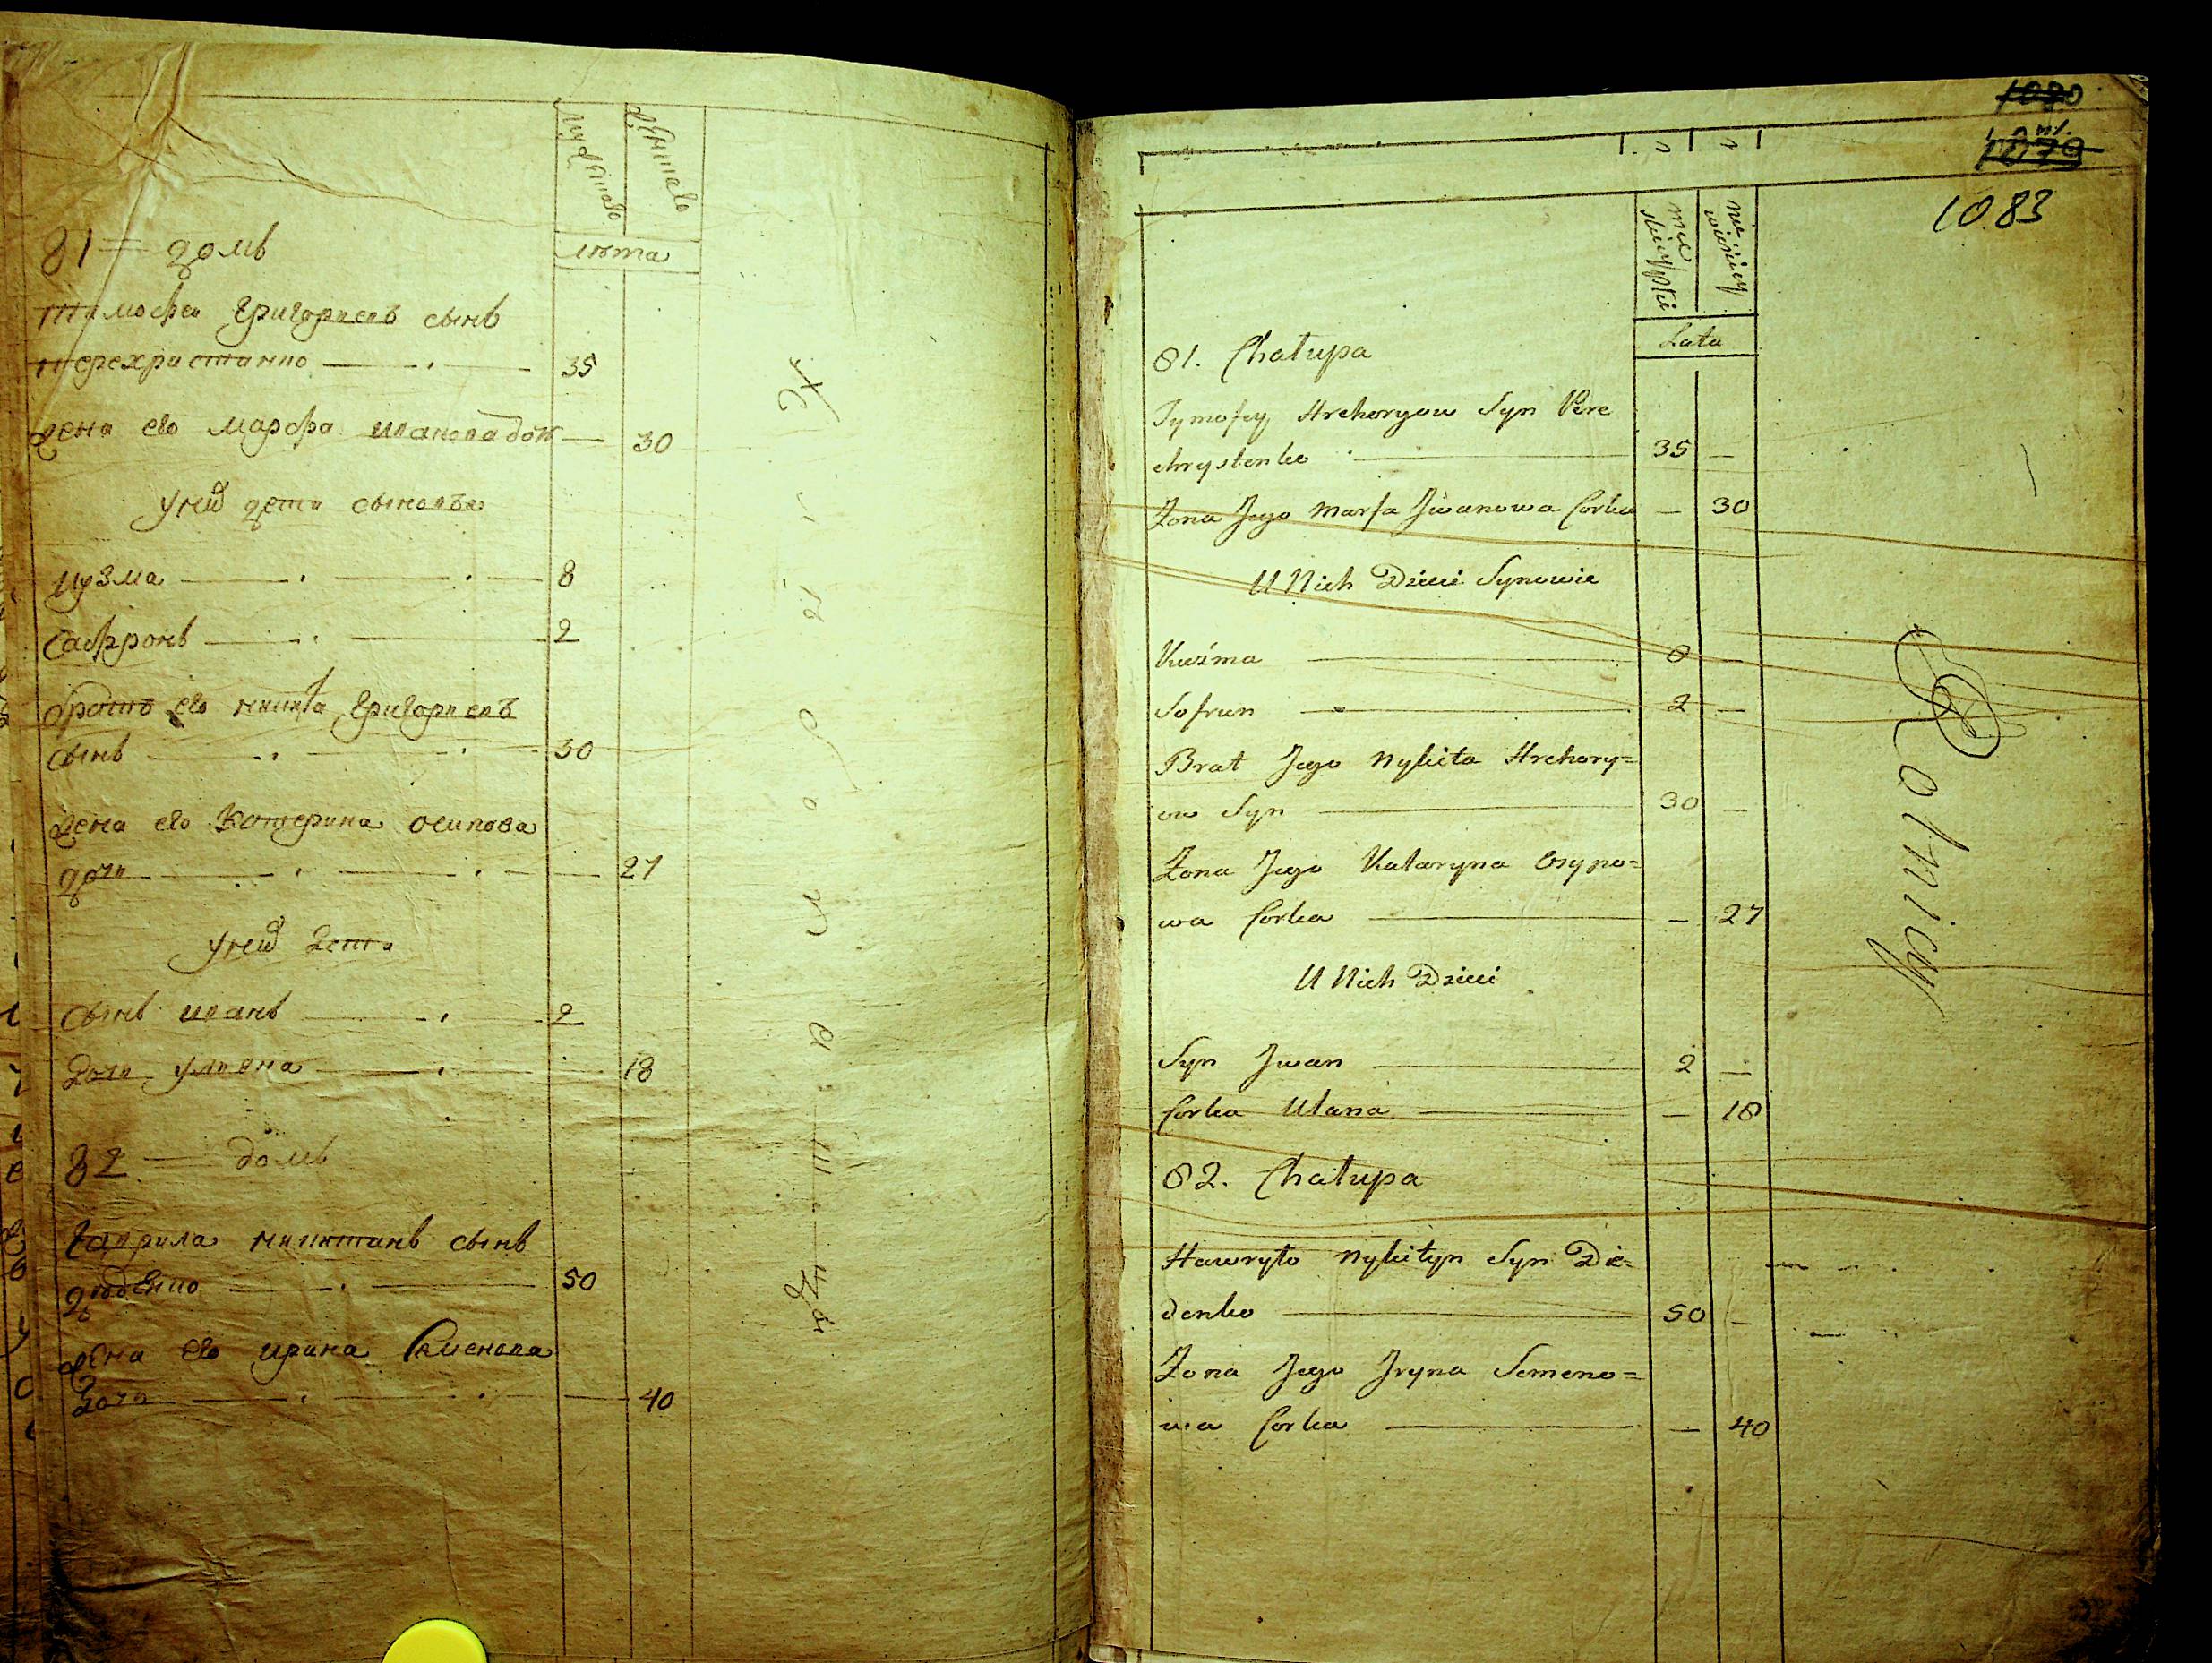 лета
81 = домъ
Тимофеи Григориевъ сынъ
перехристенко 35
жена его марфа иванова доч 30
у них дети сыновья
Кузма 8
Сафронъ 2
братъ его никита Григориевъ
сынъ 30
жена его Катерина осипова
дочь 27
у них дети
сынъ иванъ 2
дочь улияна 18
82 = домъ
Гаврила никитинъ сынъ
деденко 50
жена его ирина Семенова
дочь 40
1080
1079
1083
męskiey płci
niewieściey
Lata
81. Chałupa
Tymofey Hrehoryow Syn Pere
chrystenko 35 —
Żona Jego Marfa Jwanowa Corka — 30
U Nich Dzieci Synowie
Kuźma 8 —
Sofron 2 —
Brat Jego Nykita Hrehory=
ow Syn 30 —
Żona Jego Kataryna Osypo=
wa Corka — 27
U Nich Dzieci
Syn Jwan 2 —
Corka Ulana — 18
82. Chałupa
Hawryło Nykityn Syn Die=
denko 50 —
Żona Jego Jryna Semeno=
wa Corka — 40
Rolnicy